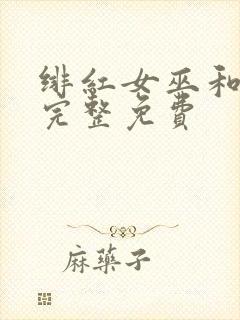 绯红女巫和
完整免费
麻藥子